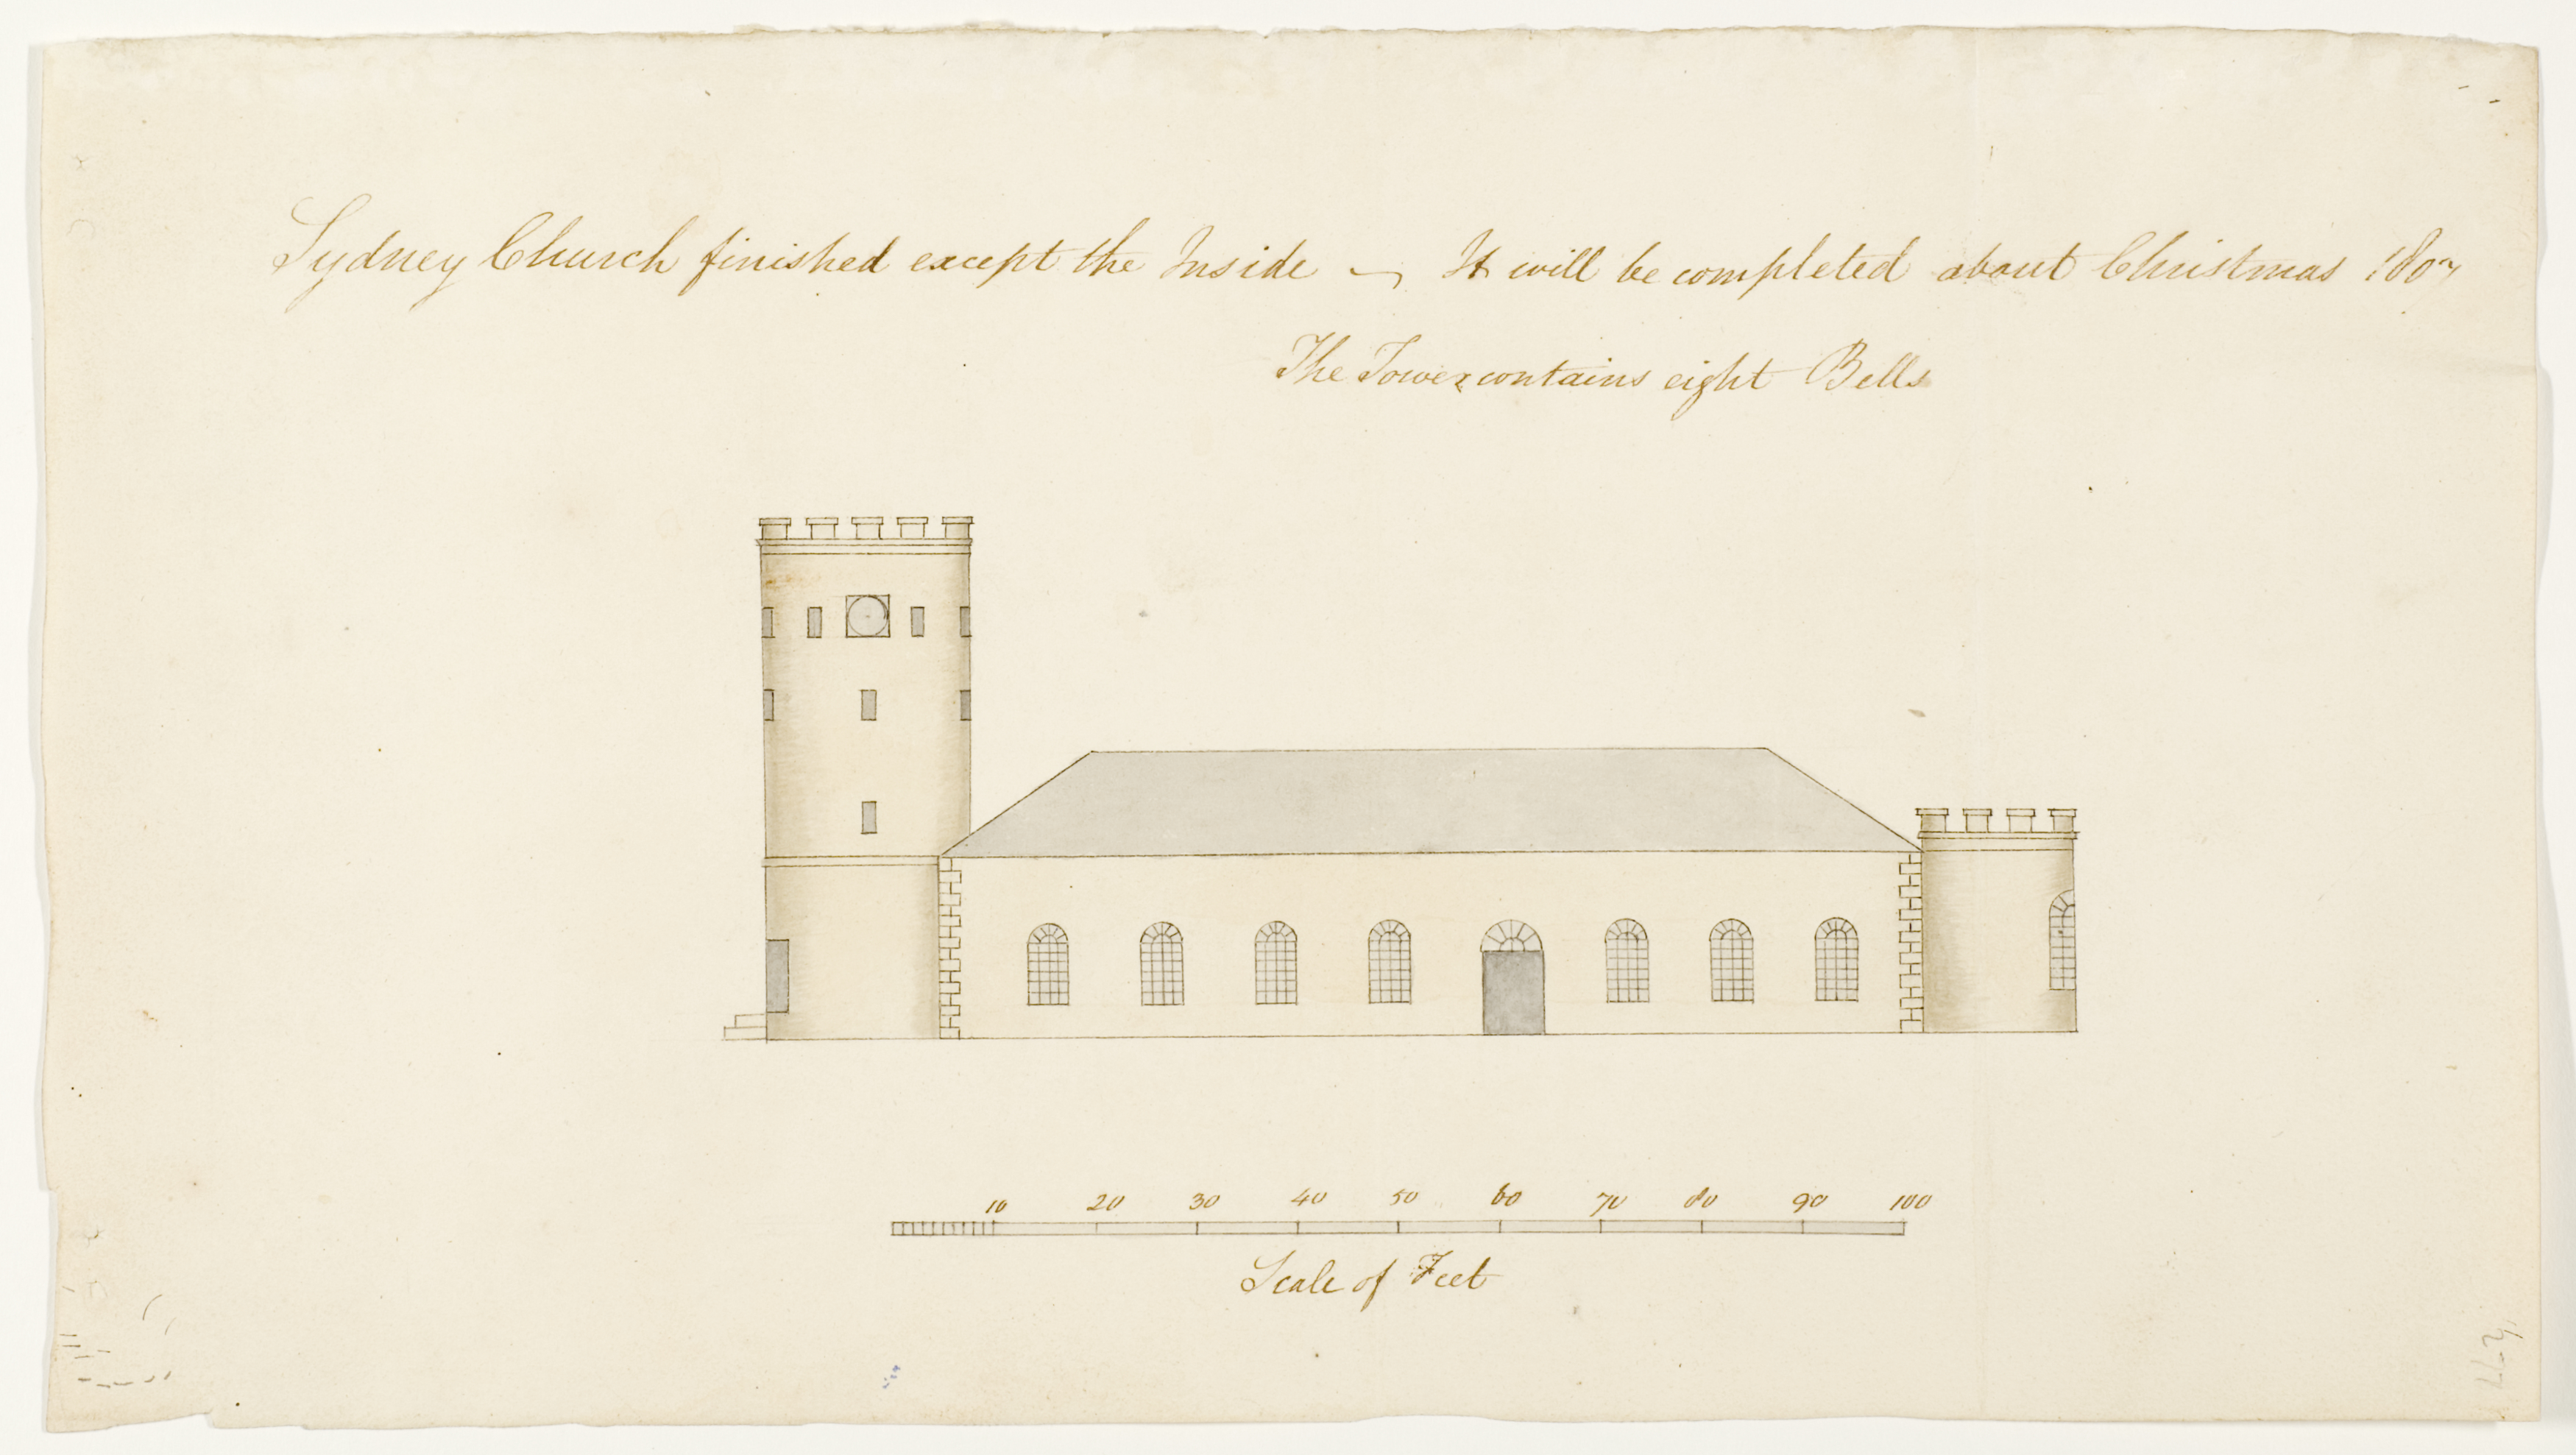 Sydney Church finished except the Inside — It will be completed about Christmas 1807
The Tower contains eight Bells
10 20 30 40 50 60 70 80 90 100
Scale of Feet